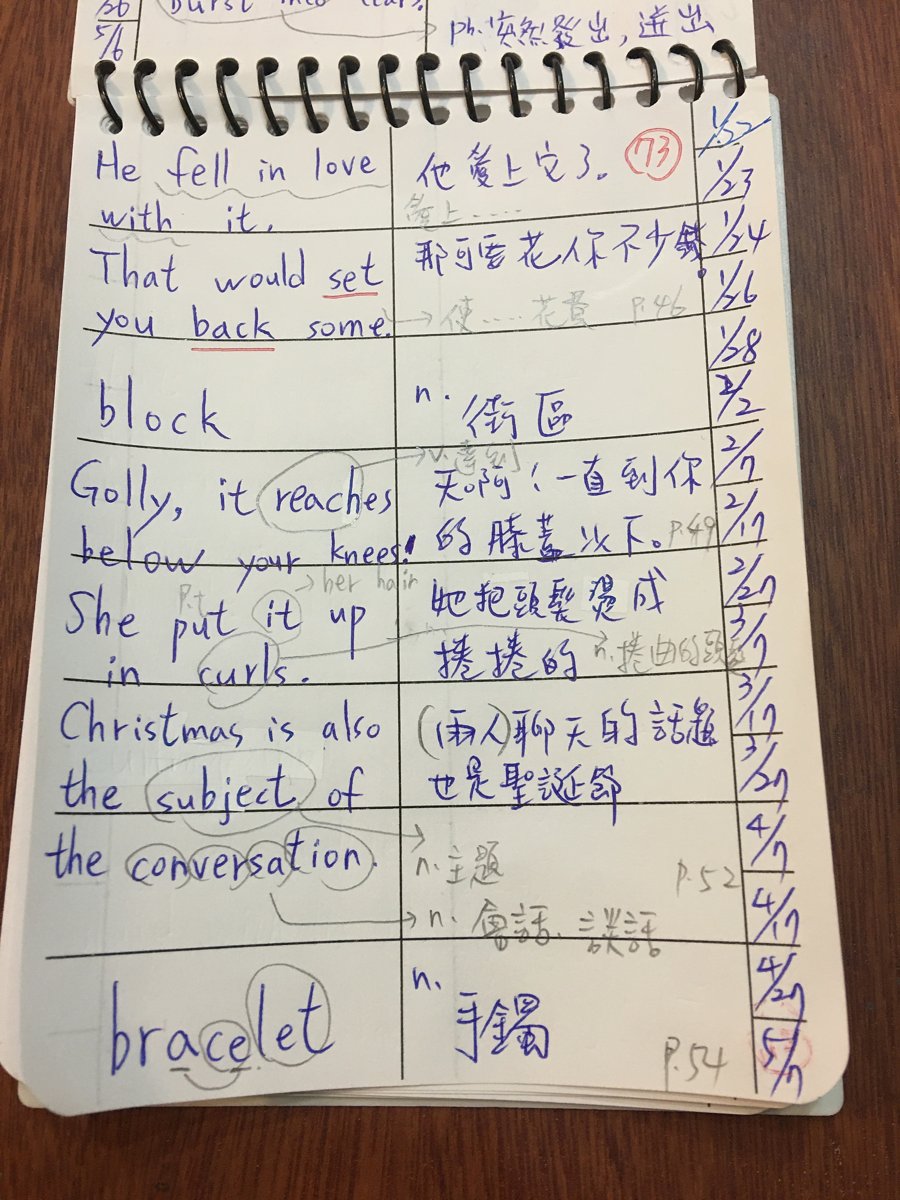 26
5/6
burst into tears.
ph. 突然發出，迸出
He fell in love
with it.
他愛上它了。
73
愛上……
That would set
you back some.
那可要花你不少錢。
使……花費 p.46
block
n.
街區
Golly, it reaches
below your knees!
v. 達到
天啊！一直到你
的膝蓋以下。
p.49
her hair
p.t
She put it up
in curls.
她把頭髮燙成
捲捲的
n. 捲曲的頭髮
Christmas is also
the subject of
the conversation.
(兩人)聊天的話題
也是聖誕節
n. 主題
p.52
n. 會話、談話
bracelet
n.
手鐲
p.54
1/22
1/23
1/24
1/26
1/28
2/2
2/7
2/17
2/27
3/7
3/17
3/27
4/7
4/17
4/27
5/7